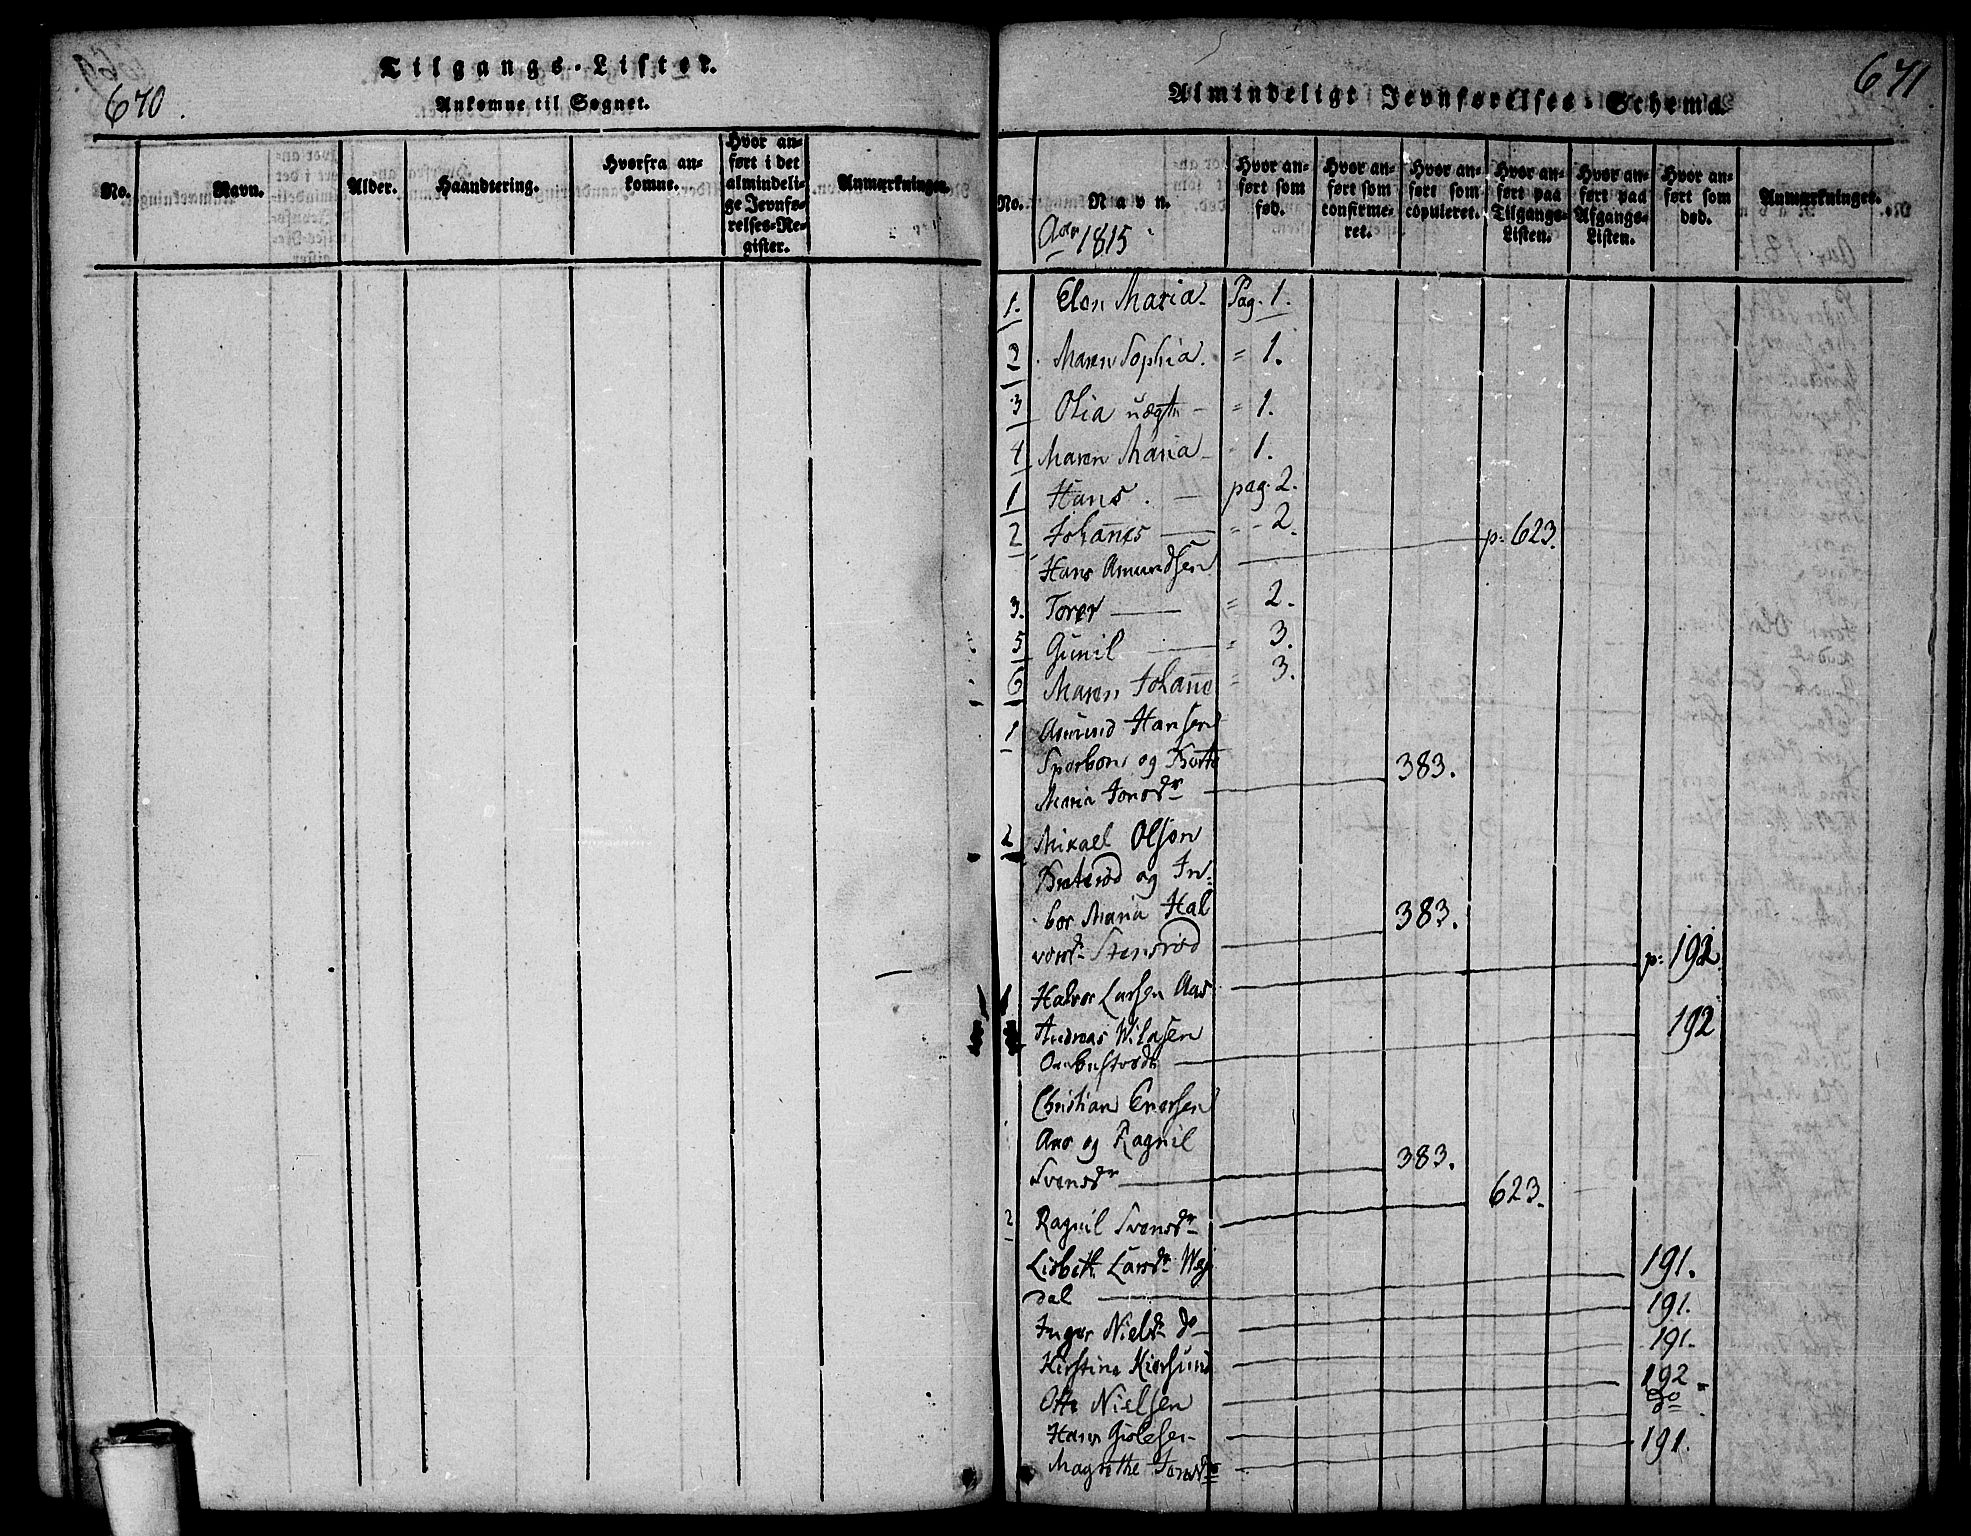 670.
Tilgangs-Lister.
Ankomne til Sognet.
No.
Navn.
Alder.
Haandtering.
Hvorfra an-
komne.
Hvor an-
ført i det
almindeli-
ge Jevnfø-
relses-Re-
gister.
Anmærkninger.
671.
Almindeligt Jevnførelses-Schema.
No.
Navn.
Hvor an-
ført som
fød.
Hvor an-
ført som
confirme-
ret.
Hvor an-
ført som
copuleret.
Hvor an-
ført paa
Tilgangs-
Listen.
Hvor an-
ført paa
Afgangs-
Listen.
Hvor an-
ført som
død.
Anmærkninger.
Aar 1815
1. Elen Maria. Pag. 1.
2 Maren Sophia. = 1.
3 Olia uægte - = 1.
4 Maren Maria - - 1.
1 Hans. — pag. 2.
2 Johanes — = - 2.
Hans Amundsen — p. 623.
3. Torer — = 2.
5 Gunil — = 3.
6 Maren Johane = 3.
1 Amund Hansen
Sporbon og Berte
Maria Jonsdr — 383.
2 Mikael Olson
og In-
bor Maria Hal
vorsd. Stensrød — 383.
Halvor Larsen Aas — p. 192.
Andreas Nilasen
— 192
Christian Enersen
Aas og Ragnil
Svensdr — 383.
2 Ragnil Svensdr — 623.
Lisbeth Larsdr Wej
dal — 191.
Inger Nielsdr do — 191.
Kirstine Kiersund — 191.
Otte Nielsen — 192.
Hans Gislesen — do
Magrethe Jonsdr — 191.